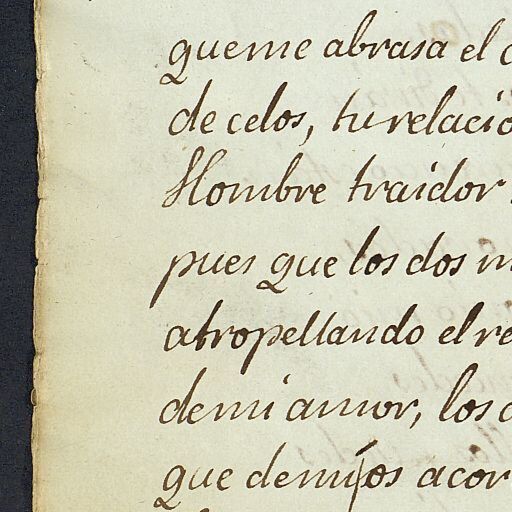 que me abrasa el
de celos, tu relacio
Hombre traidor
pues que los dos
atropellando el re
de mi amor, los
que demi os acor